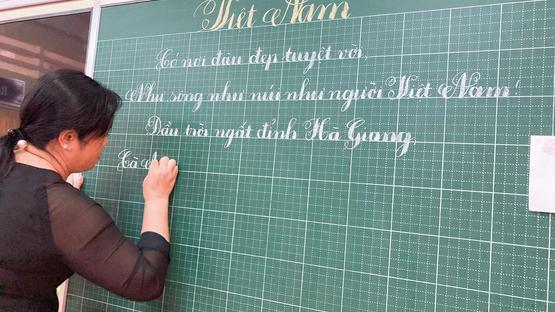 Việt Nam
Có nơi đâu đẹp tuyệt vời,
Như sông như núi như người Việt Nam!
Đầu trời ngất đỉnh Hà Giang
Cà